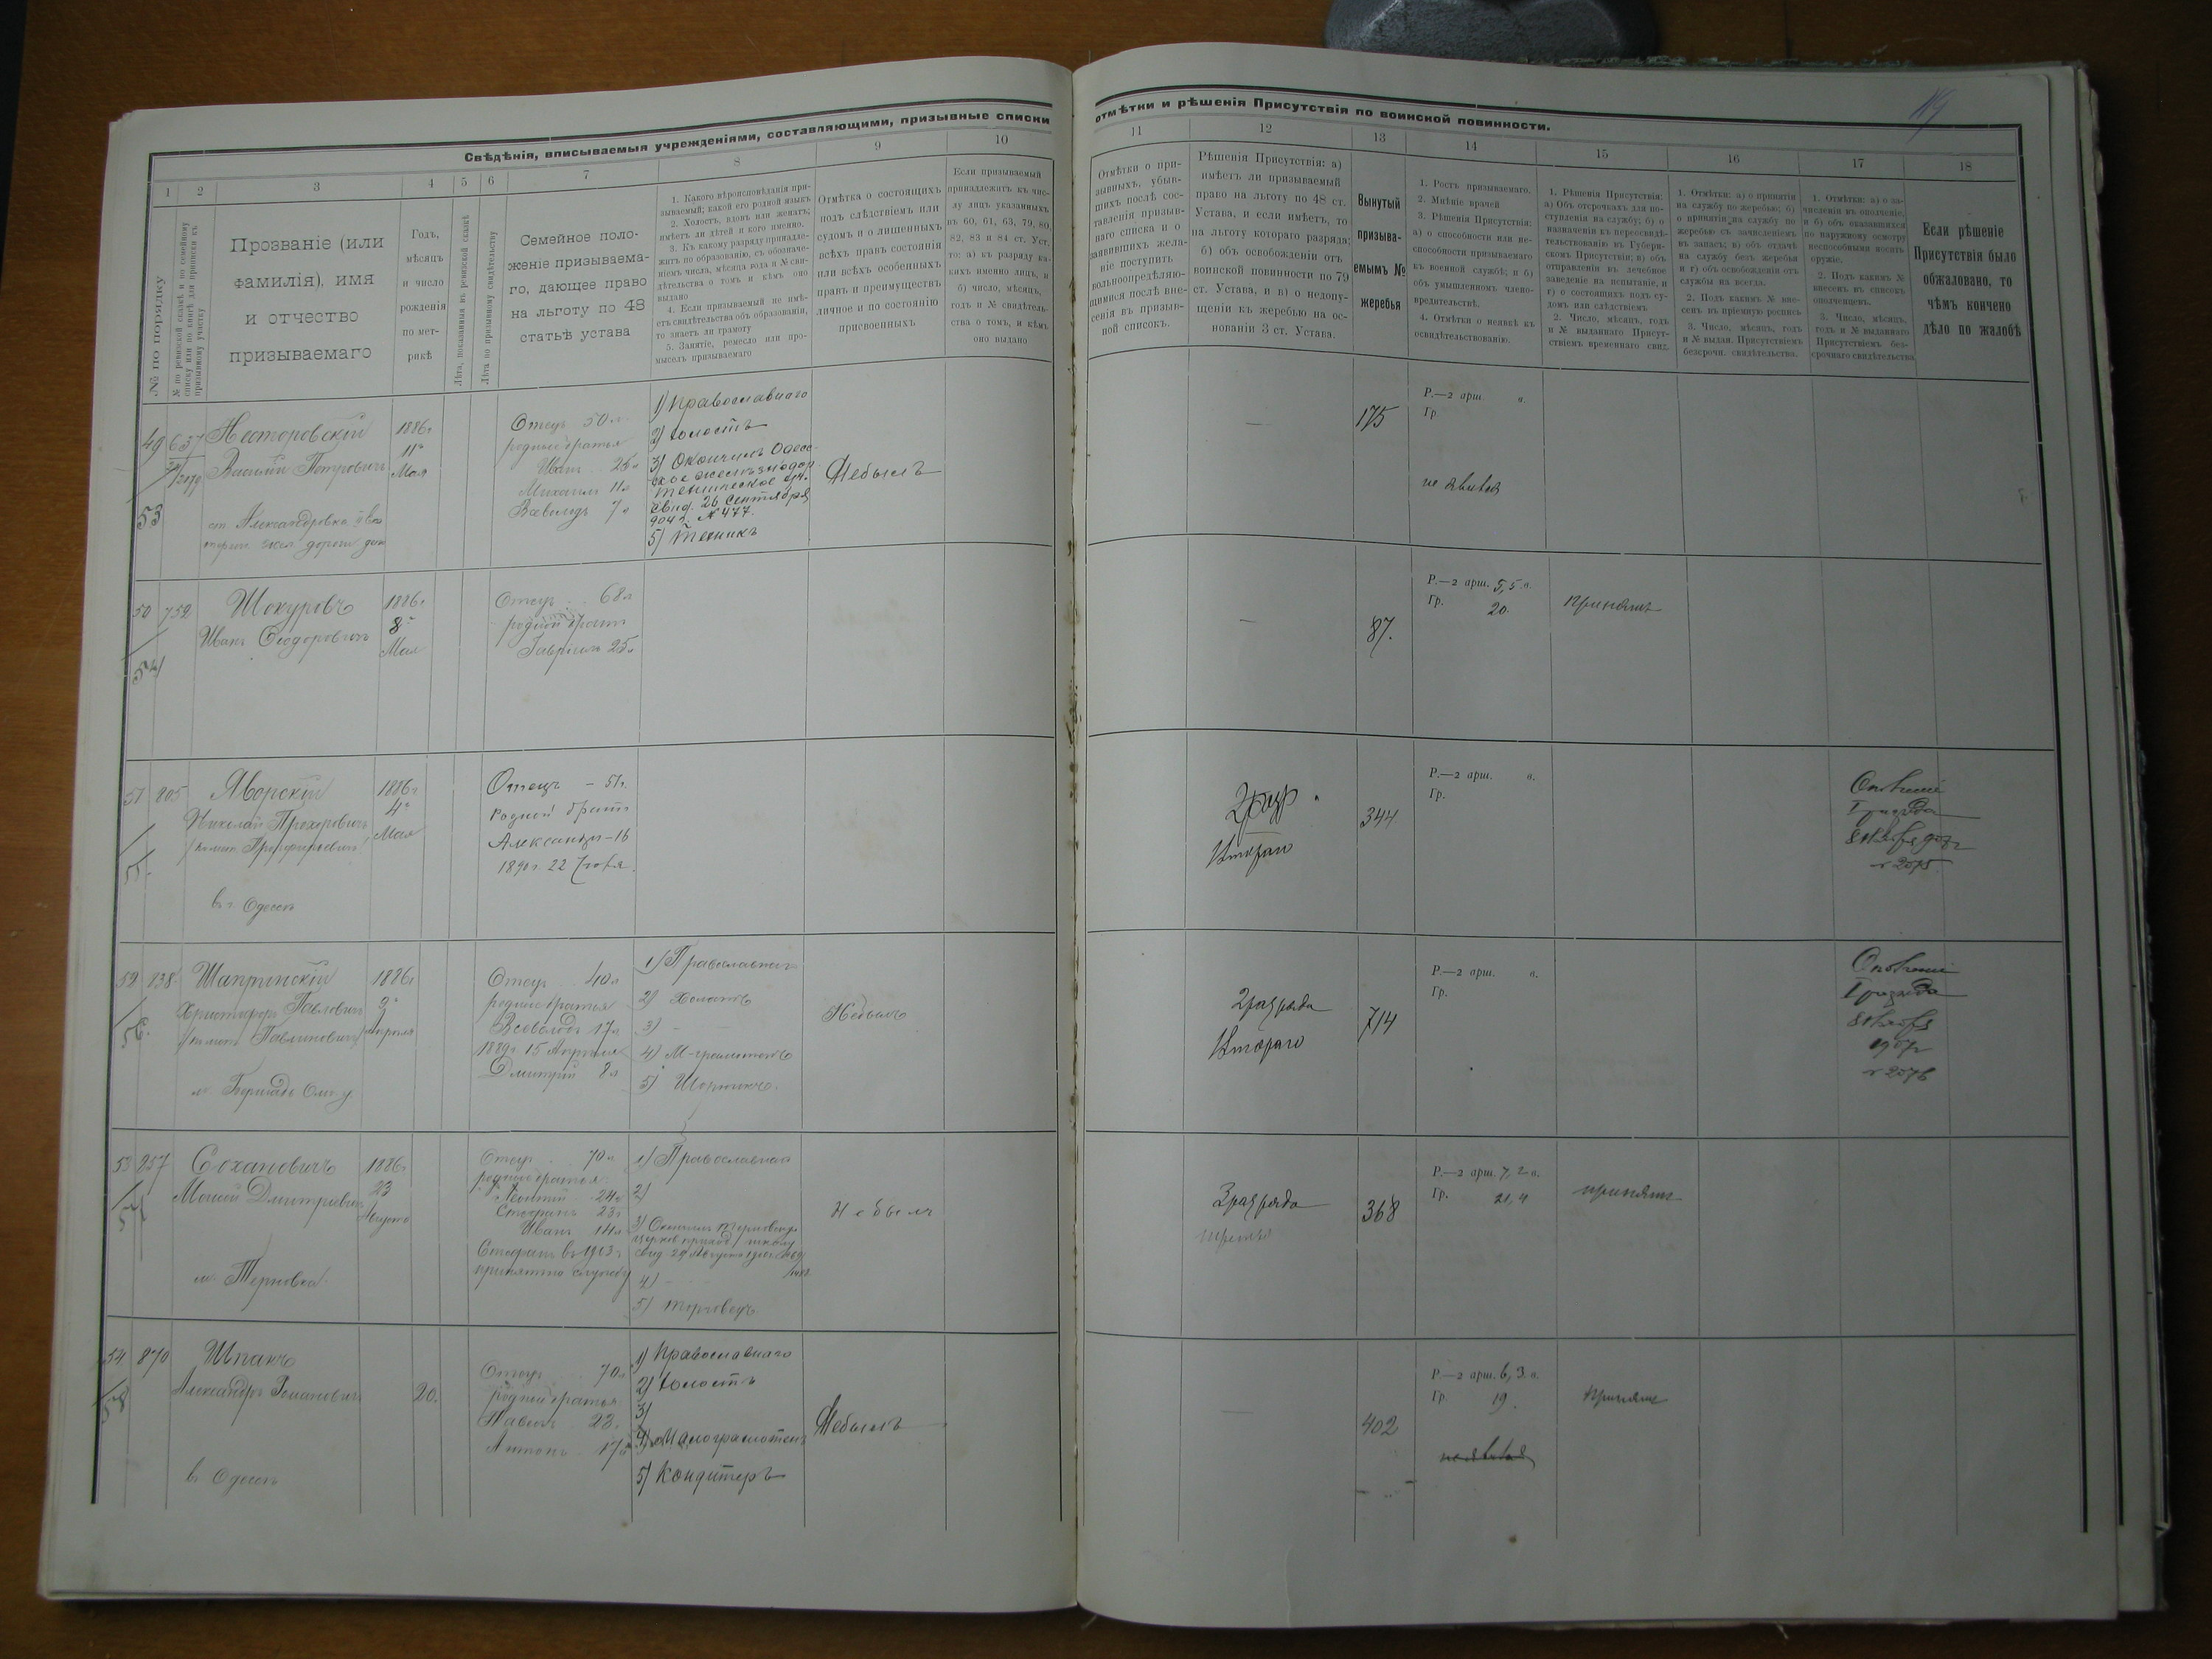 Свѣдѣнія, вписываемыя учрежденіями, составляющими, призывные списки
1 2 3 4 5 6 7 8 9 10
№ по порядку
№ по ревизской сказкѣ и по семейному
списку или по книгѣ для приписки къ
призывному участку
Прозваніе (или
фамилія), имя
и отчество
призываемаго
Годъ,
мѣсяцъ
и число
рожденія
по мет-
рикѣ
Лѣта, показанныя въ ревизской сказкѣ
Лѣта по призывному свидѣтельству
Семейное поло-
женіе призываема-
го, дающее право
на льготу по 48
статьѣ устава
1. Какого вѣроисповѣданія при-
зываемый; какой его родной языкъ
2. Холостъ, вдовъ или женатъ;
имѣетъ ли дѣтей и кого именно.
3. Къ какому разряду принадле-
житъ по образованію, съ обозначе-
ніемъ числа, мѣсяца года и № сви-
дѣтельства о томъ и кѣмъ оно
выдано
4. Если призываемый не имѣ-
етъ свидѣтельства объ образованіи,
то знаетъ ли грамоту
5. Занятіе, ремесло или про-
мыселъ призываемаго
Отмѣтка о состоящихъ
подъ слѣдствіемъ или
судомъ и о лишенныхъ
всѣхъ правъ состоянія
или всѣхъ особенныхъ
правъ и преимуществъ
личное и по состоянію
присвоенныхъ
Если призываемый
принадлежитъ къ чис-
лу лицъ указанныхъ
въ 60, 61, 63, 79, 80,
82, 83 и 84 ст. Уст.
то: а) къ разряду ка-
кихъ именно лицъ, и
б) число, мѣсяцъ,
годъ и № свидѣтель-
ства о томъ, и кѣмъ
оно выдано
49 637
53
Несторовскій
Василій Петровичъ
ст. Александровка
1886г
11го
Мая
Отецъ 50 л
родные братья
Иванъ 25 л
Михаилъ 11 л
Всеволодъ 7 л
1) Православнаго
2) холостъ
3) Окончилъ Одесс-
кое желѣзнодор
техническое уч.
свид. 26 Сентября
904 г. № 477.
5) Техникъ
Небылъ
50 752
54
Шокуровъ
Иванъ Ѳеодоровичъ
1886г
8го
Мая
Отецъ 68 л
родной братъ
Гавріилъ 25 л
51 805
55
Яворскій
Николай Прохоровичъ
въ г. Одессѣ
1886г
4го
Мая
Отецъ – 51 г.
родной братъ
Александръ – 16
1890 г. 22
52 838
56
Шапринскій
Христофоръ Павловичъ
м. Бершадь Ольг. у.
1886г
9го
Апрѣля
Отецъ 40 л
родные братья
Всеволодъ 17 л
1889г 15 Апрѣля
Дмитрій 8 л
1) Православнаг
2) Холостъ
3) –
4) М-грамотенъ
5) Шорникъ.
Небылъ
53 857
57
Сохановичъ
Моисей Дмитріевичъ
м. Терновка
1886г
23
Августа
Отецъ 70 л
родные братья
Леонтій 24 л
Стефанъ 23 г
Иванъ 14 л
Стефанъ въ 1903 г
принятъ на службу
1) Православнаго
2)
3) Окончилъ Терновскую
церков. приход. школу
4) –
5) торговецъ
Небылъ
54 870
58
Шпакъ
Александръ Романовичъ
въ Одессѣ
20.
Отецъ 70 л
родные братья
Павелъ 23.
Антонъ 17 л
1) Православнаго
2) холостъ
3)
4) Малограмотенъ
5) Кондитеръ
Небылъ
отмѣтки и рѣшенія Присутствія по воинской повинности.
11 12 13 14 15 16 17 18
Отмѣтки о при-
зывныхъ, убыв-
шихъ послѣ сос-
тавленія призыв-
наго списка и о
заявившихъ жела-
ніе поступить
вольноопредѣляю-
щимися послѣ вне-
сенія въ призыв-
ной списокъ.
Рѣшенія Присутствія: а)
имѣетъ ли призываемый
право на льготу по 48 ст.
Устава, и если имѣетъ, то
на льготу котораго разряда;
б) объ освобожденіи отъ
воинской повинности по 79
ст. Устава, и в) о недопу-
щеніи къ жеребью на ос-
нованіи 3 ст. Устава.
Вынутый
призыва-
емымъ №
жеребья
1. Ростъ призываемаго.
2. Мнѣніе врачей
3. Рѣшенія Присутствія:
а) о способности или не-
способности призываемаго
къ военной службѣ; и б)
объ умышленномъ члено-
вредительствѣ.
4. Отмѣтки о неявкѣ къ
освидѣтельствованію.
1. Рѣшенія Присутствія:
а) Объ отсрочкахъ для по-
ступленія на службу; б) о
назначеніи къ переосвидѣ-
тельствованію въ Губерн-
скомъ Присутствіи; в) объ
отправленіи въ лечебное
заведеніе на испытаніе, и
г) о состоящихъ подъ су-
домъ или слѣдствіемъ
2. Число, мѣсяцъ, годъ
и № выданнаго Присут-
ствіемъ временнаго свид.
1. Отмѣтки: а) о принятіи
на службу по жеребью; б)
о принятіи на службу по
жеребью съ зачисленіемъ
въ запасъ; в) объ отдачѣ
на службу безъ жеребья
и г) объ освобожденіи отъ
службы на всегда.
2. Подъ какимъ № вне-
сенъ въ пріемную роспись
3. Число, мѣсяцъ, годъ
и № выдан. Присутствіемъ
безсрочн. свидѣтельства.
1. Отмѣтки: а) о за-
численіи въ ополченіе,
и б) объ оказавшихся
по наружному осмотру
неспособными носить
оружіе.
2. Подъ какимъ №
внесенъ въ списокъ
ополченцевъ.
3. Число, мѣсяцъ,
годъ и № выданнаго
Присутствіемъ без-
срочнаго свидѣтельства
Если рѣшеніе
Присутствія было
обжаловано, то
чѣмъ кончено
дѣло по жалобѣ
—
175
Р.—2 арш. в.
Гр.
не явился
—
87.
Р.—2 арш. 5,5 в.
Гр. 20.
принятъ
2 разр
Втораго
344
Р.—2 арш. в.
Гр.
Ополченіе
I разряда
2 разряда
Втораго
714
Р.—2 арш. в.
Гр.
Ополченіе
I разряда
3 разряда
третьяго
368
Р.—2 арш. 7,2 в.
Гр. 21,4
принятъ
—
402
Р—2 арш. 6,3 в.
Гр. 19.
неявился
принятъ